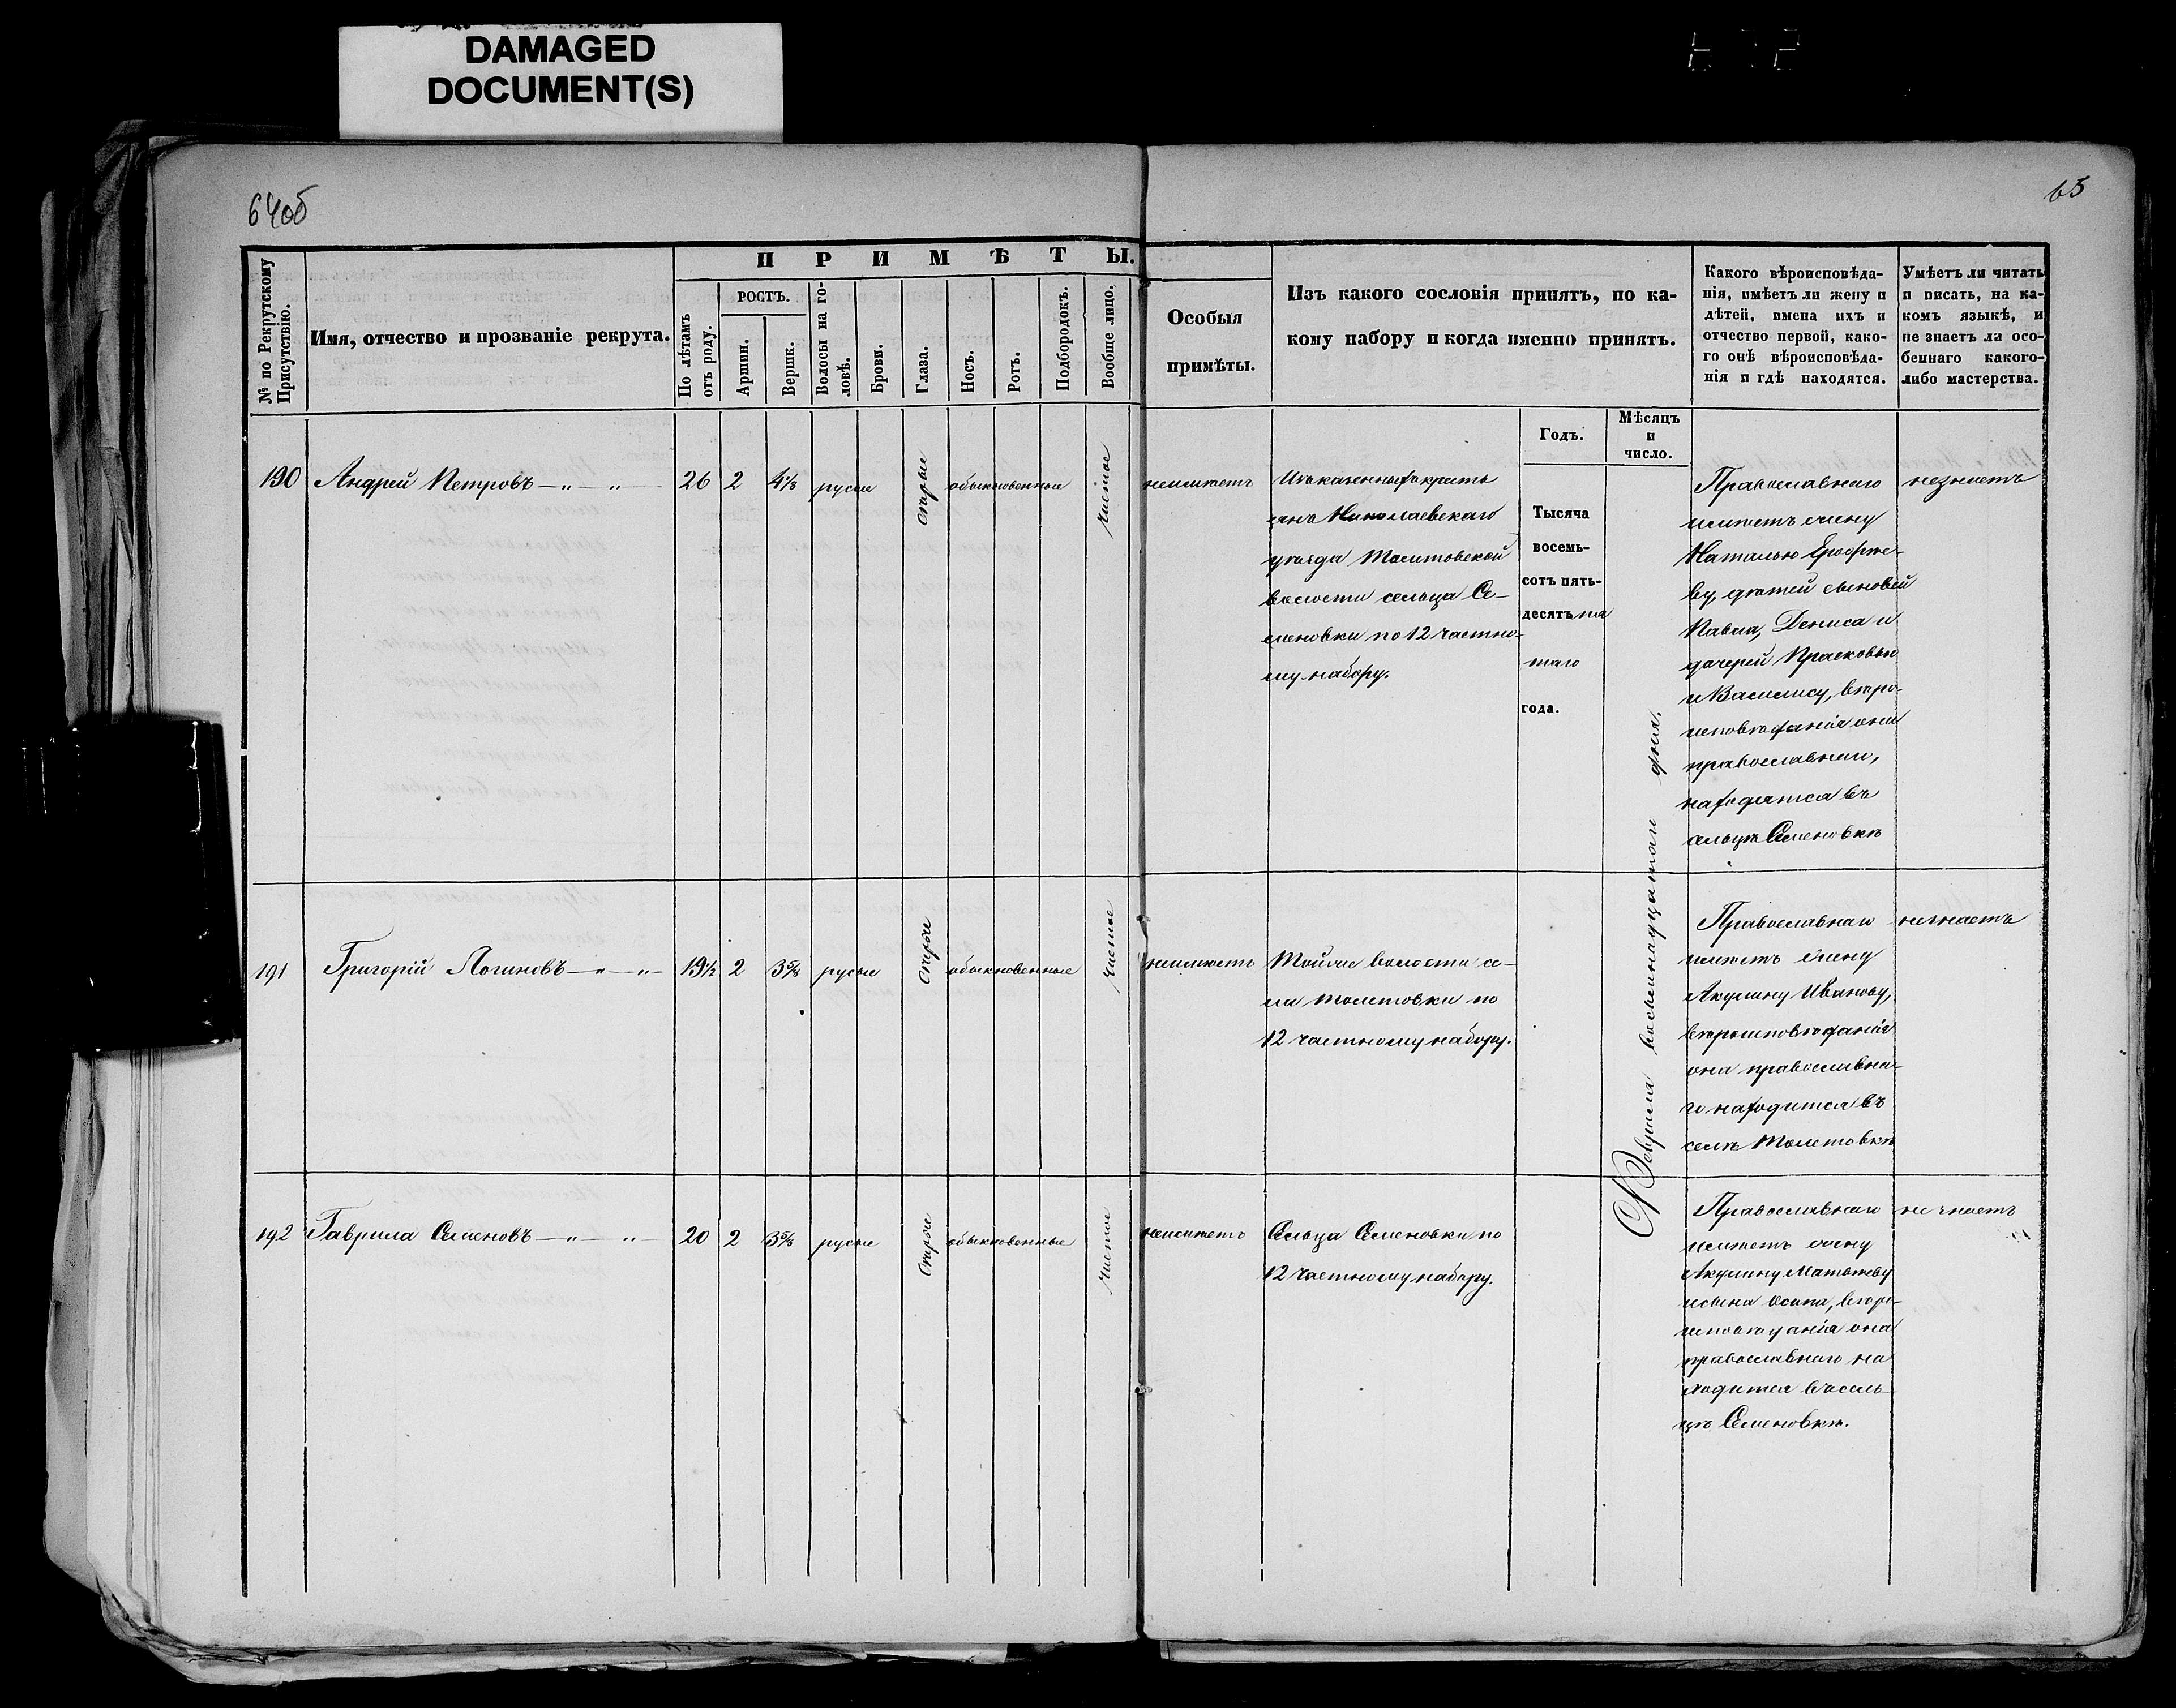 DAMAGED
DOCUMENT(S)
64об
65
№ по Рекрутскому Присутствію.
Имя, отчество и прозваніе рекрута.
ПРИМѢТЫ.
По лѣтамъ отъ роду.
РОСТЪ.
Аршин.
Вершк.
Волосы на головѣ.
Брови.
Глаза.
Носъ.
Ротъ.
Подбородокъ.
Вообще лицо.
Особыя
примѣты.
Изъ какого сословія принятъ, по ка-
кому набору и когда именно принятъ.
Годъ.
Мѣсяцъ
и
число.
Какого вѣроисповѣда-
нія, имѣетъ ли жену и
дѣтей, имена ихъ и
отчество первой, како-
го онѣ вѣроисповѣда-
нія и гдѣ находятся.
Умѣетъ ли читать
и писать, на ка-
комъ языкѣ, и
не знаетъ ли осо-
беннаго какого-
либо мастерства.
190 Андрей Петровъ — „ — „ — 26 2 4⅛ русые сѣрые обыкновенные чистое неимѣетъ
Изъ казенныхъ кресть
янъ Николаевскаго
уѣзда Толстовской
волости сельца Се-
меновки по 12 частно-
му набору.
Тысяча
восемь-
сотъ пять-
десятъ пя
таго
года.
Февраля восемнадцатаго дня.
Православнаго
имѣетъ жену
Наталью Ерофѣе-
ву, дѣтей сыновей
Павла, Дениса и
дочерей Прасковью
и Василису, вѣро-
исповѣданія они
православнаго,
находятся въ
сельцѣ Семеновкѣ
незнаетъ
191 Григорій Логиновъ — „ — „ 19½ 2 3⅝ русые сѣрые обыкновенные чистое неимѣетъ
Тойже волости се-
ла Толстовки по
12 частному набору.
Православнаго
имѣетъ жену
Акулину Иванову,
вѣроисповѣданія
она православна-
го находится въ
селѣ Толстовкѣ
незнаетъ
192 Гаврила Семеновъ — „ — „ 20 2 3⅝ русые сѣрые обыкновенные чистое неимѣетъ
Сельца Семеновки по
12 частному набору.
Православнаго
имѣетъ жену
Акулину Матвѣеву
исына Осипа, вѣро-
исповѣданія она
православнаго на
ходится въ сель-
цѣ Семеновкѣ.
не знаетъ